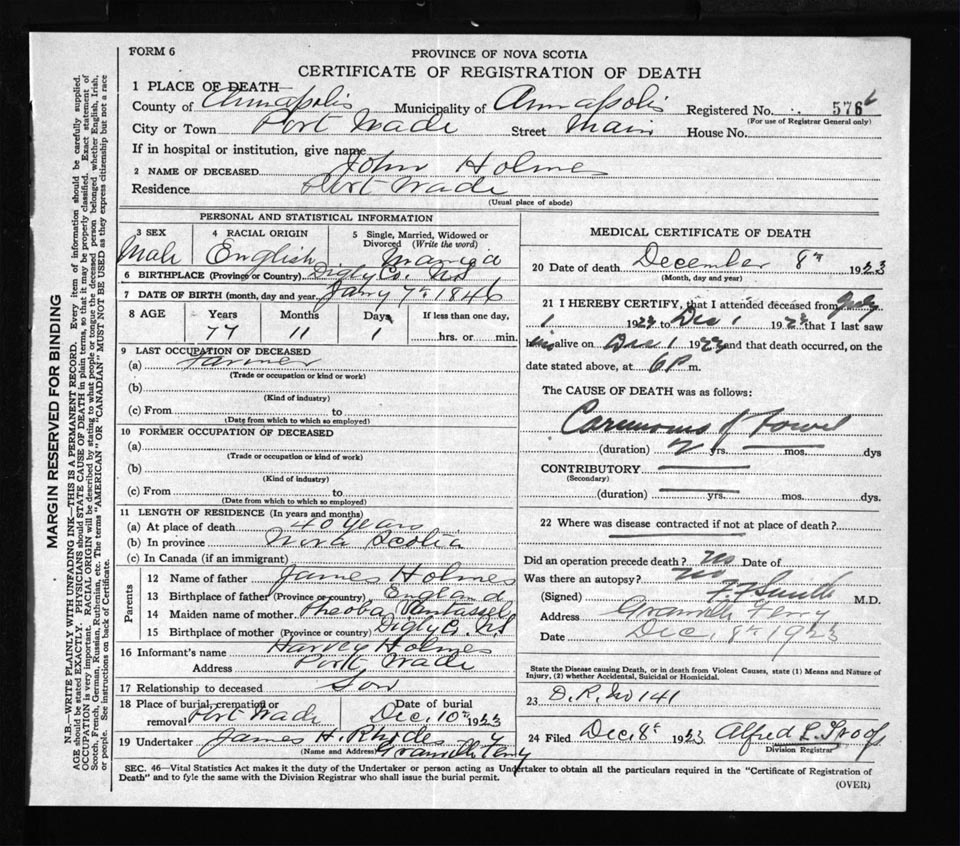 FORM 6
PROVINCE OF NOVA SCOTIA
CERTIFICATE OF REGISTRATION OF DEATH
1 PLACE OF DEATH—
County of Annapolis Municipality of Annapolis Registered No. 576
(For use of Registrar General only)
City or Town Port Wade Street Main House No.
If in hospital or institution, give name
2 NAME OF DECEASED John Holmes
Residence Port Wade
(Usual place of abode)
PERSONAL AND STATISTICAL INFORMATION
3 SEX 4 RACIAL ORIGIN 5 Single, Married, Widowed or
Divorced (Write the word)
Male English Married
6 BIRTHPLACE (Province or Country) Digby Co. NS
7 DATE OF BIRTH (month, day and year) Jany 7th 1846
8 AGE Years Months Days If less than one day,
77 11 1 hrs. or min.
9 LAST OCCUPATION OF DECEASED
(a) Farmer
(Trade or occupation or kind or work)
(b)
(Kind of industry)
(c) From to
(Date from which to which so employed)
10 FORMER OCCUPATION OF DECEASED
(a)
(Trade or occupation or kind of work)
(b)
(Kind of industry)
(c) From to
(Date from which to which so employed)
11 LENGTH OF RESIDENCE (In years and months)
(a) At place of death 40 years
(b) In province Nova Scotia
(c) In Canada (if an immigrant)
Parents
12 Name of father James Holmes
13 Birthplace of father (Province or country) England
14 Maiden name of mother Pheoba Vantassel
15 Birthplace of mother (Province or country) Digby Co. NS
16 Informant's name Harvey Holmes
Address Port Wade
17 Relationship to deceased Son
18 Place of burial, cremation or removal Port Wade Date of burial Dec. 10th 1923
19 Undertaker James H. Rhodes
(Name and Address) Granville Ferry
MEDICAL CERTIFICATE OF DEATH
20 Date of death December 8th 1923
(Month, day and year)
21 I HEREBY CERTIFY, that I attended deceased from July
1 1923 to Dec 1 1923 that I last saw
him alive on Dec 1 1923 and that death occurred, on the
date stated above, at 6 P. m.
The CAUSE OF DEATH was as follows:
Carcinoma of bowel
(duration) yrs. mos. dys
CONTRIBUTORY
(Secondary)
(duration) yrs. mos. dys.
22 Where was disease contracted if not at place of death?
Did an operation precede death? no Date of
Was there an autopsy? no
(Signed) F. F. Smith M.D.
Address Granville Ferry
Date Dec. 8th 1923
State the Disease causing Death, or in death from Violent Causes, state (1) Means and Nature of
Injury, (2) whether Accidental, Suicidal or Homicidal.
23 D. R. No 141
24 Filed Dec. 8th 1923 Alfred L.
Division Registrar
SEC. 46—Vital Statistics Act makes it the duty of the Undertaker or person acting as Undertaker to obtain all the particulars required in the "Certificate of Registration of
Death" and to fyle the same with the Division Registrar who shall issue the burial permit.
(OVER)
MARGIN RESERVED FOR BINDING
N.B.—WRITE PLAINLY WITH UNFADING INK—THIS IS A PERMANENT RECORD. Every item of information should be carefully supplied.
AGE should be stated EXACTLY. PHYSICIANS should STATE CAUSE OF DEATH in plain terms, so that it may be properly classified. Exact statement of
OCCUPATION is very important. RACIAL ORIGIN will be described by stating to what people or tongue the deceased person belonged whether English, Irish,
Scotch, French, German, Russian, Ruthenian, etc. The terms "AMERICAN" OR "CANADIAN" MUST NOT BE USED as they express citizenship but not a race
or people. See instructions on back of Certificate.